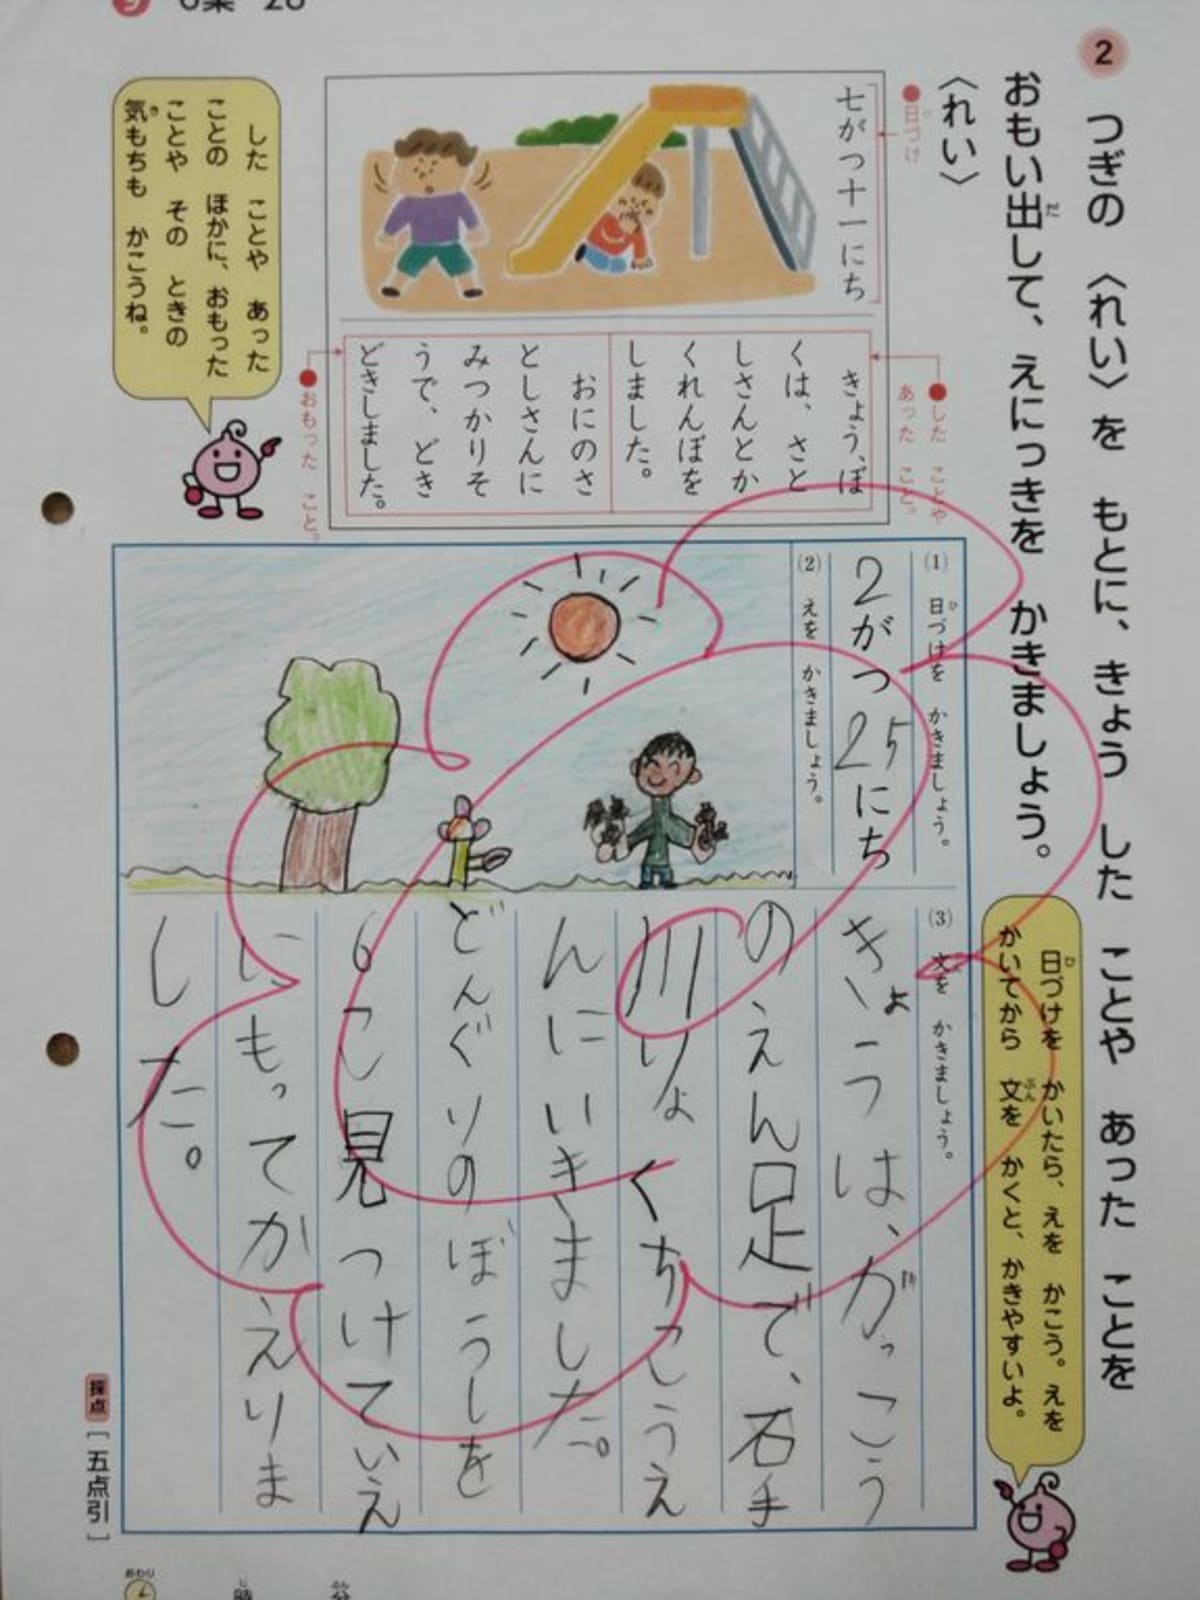 2
つぎの 〈れい〉を もとに、きょう した ことや あった ことを
おもい出して、えにっきを かきましょう。
だ
〈れい〉
●日づけ
ひ
七がつ十一にち
●した ことや
あった こと。
きょう、ぼ
くは、さと
しさんとか
くれんぼを
しました。
おにのさ
としさんに
みつかりそ
うで、どき
どきしました。
●おもった こと。
した ことや あった
ことの ほかに、おもった
ことや その ときの
気もちも かこうね。
き
日づけを かいたら、えを かこう。えを
ひ
かいてから 文を かくと、かきやすいよ。
ぶん
(1) 日づけを かきましょう。
ひ
2がつ25にち
(2) えを かきましょう。
(3) 文を かきましょう。
きょうは、がっこう
のえん足で、石手
川りょくちこうえ
んにいきました。
どんぐりのぼうしを
6こ見つけていえ
にもってかえりま
した。
採点 [五点引]
おわり
時
じ
分
ふん